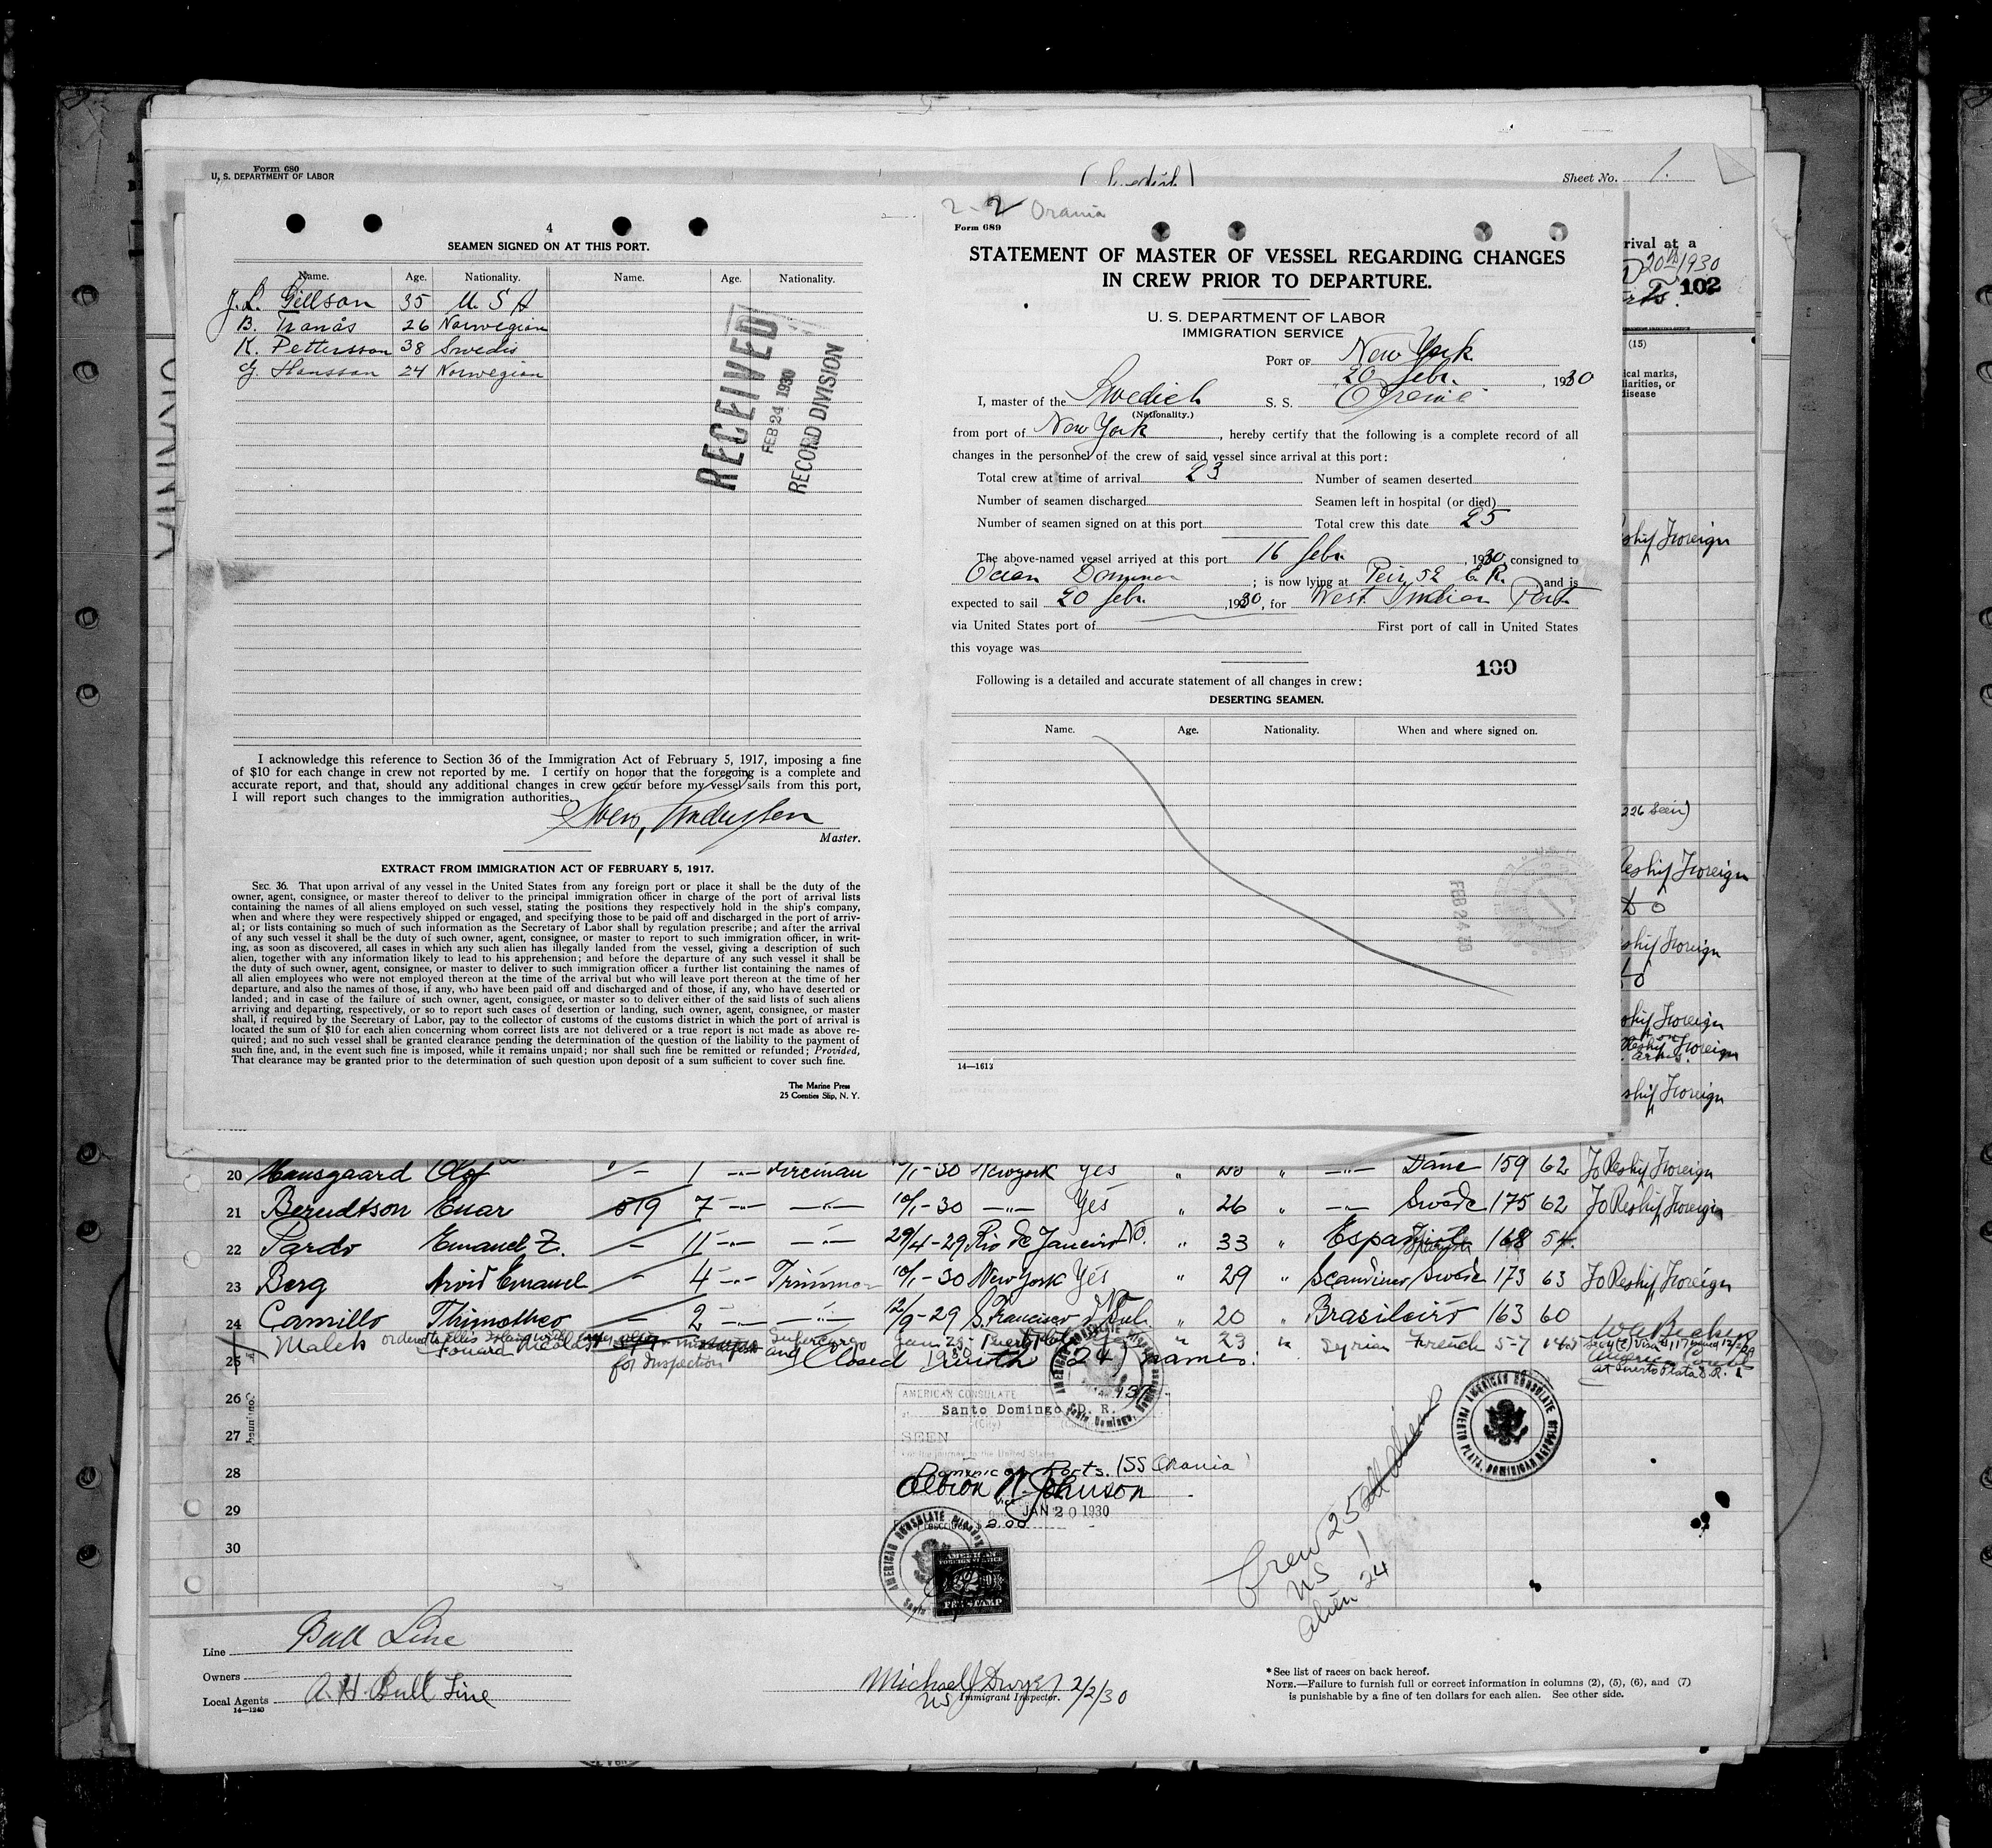 Form 680
U. S. DEPARTMENT OF LABOR
(Swedish)
Sheet No. 1.
4
SEAMEN SIGNED ON AT THIS PORT.
Name. Age. Nationality. Name. Age. Nationality.
J. L. Gillson 35 U S A
B. Tranås 26 Norwegian
K. Pettersson 38 Swedis
G. Hansson 24 Norwegian
RECEIVED
FEB 24 1930
RECORD DIVISION
I acknowledge this reference to Section 36 of the Immigration Act of February 5, 1917, imposing a fine
of $10 for each change in crew not reported by me. I certify on honor that the foregoing is a complete and
accurate report, and that, should any additional changes in crew occur before my vessel sails from this port,
I will report such changes to the immigration authorities.
Master.
EXTRACT FROM IMMIGRATION ACT OF FEBRUARY 5, 1917.
SEC. 36. That upon arrival of any vessel in the United States from any foreign port or place it shall be the duty of the
owner, agent, consignee, or master thereof to deliver to the principal immigration officer in charge of the port of arrival lists
containing the names of all aliens employed on such vessel, stating the positions they respectively hold in the ship's company,
when and where they were respectively shipped or engaged, and specifying those to be paid off and discharged in the port of arriv-
al; or lists containing so much of such information as the Secretary of Labor shall by regulation prescribe; and after the arrival
of any such vessel it shall be the duty of such owner, agent, consignee, or master to report to such immigration officer, in writ-
ing, as soon as discovered, all cases in which any such alien has illegally landed from the vessel, giving a description of such
alien, together with any information likely to lead to his apprehension; and before the departure of any such vessel it shall be
the duty of such owner, agent, consignee, or master to deliver to such immigration officer a further list containing the names of
all alien employees who were not employed thereon at the time of the arrival but who will leave port thereon at the time of her
departure, and also the names of those, if any, who have been paid off and discharged and of those, if any, who have deserted or
landed; and in case of the failure of such owner, agent, consignee, or master so to deliver either of the said lists of such aliens
arriving and departing, respectively, or so to report such cases of desertion or landing, such owner, agent, consignee, or master
shall, if required by the Secretary of Labor, pay to the collector of customs of the customs district in which the port of arrival is
located the sum of $10 for each alien concerning whom correct lists are not delivered or a true report is not made as above re-
quired; and no such vessel shall be granted clearance pending the determination of the question of the liability to the payment of
such fine, and, in the event such fine is imposed, while it remains unpaid; nor shall such fine be remitted or refunded; Provided,
That clearance may be granted prior to the determination of such question upon deposit of a sum sufficient to cover such fine.
The Marine Press
25 Coenties Slip, N. Y.
2-2 Orania
Form 689
STATEMENT OF MASTER OF VESSEL REGARDING CHANGES
IN CREW PRIOR TO DEPARTURE.
U. S. DEPARTMENT OF LABOR
IMMIGRATION SERVICE
PORT OF New York
20 Febr. , 1930
I, master of the Swedich S. S.
(Nationality.)
from port of New York, hereby certify that the following is a complete record of all
changes in the personnel of the crew of said vessel since arrival at this port:
Total crew at time of arrival 23 Number of seamen deserted
Number of seamen discharged Seamen left in hospital (or died)
Number of seamen signed on at this port Total crew this date 25
The above-named vessel arrived at this port 16 Febr. , 1930, consigned to
; is now lying at Peir 52 E. R. and is
expected to sail 20 Febr. , 1930, for West Indian Port
via United States port of First port of call in United States
this voyage was
100
Following is a detailed and accurate statement of all changes in crew:
DESERTING SEAMEN.
Name. Age. Nationality. When and where signed on.
FEB 24 30
14—1613
rival at a
20th 1930
102
(15)
ical marks,
liarities, or
disease
eship Foreign
226 Seen)
Reship Foreign
Do
eship Foreign
Do
eship Foreign
Reship Foreign
eship Foreign
20 Hansgaard Olof — 1 Fireman 1/1-30 New York Yes Dane 159 62 To Reship Foreign
21 Berndtson Enar 7 10/1-30 Yes 26 Swede 175 62 To Reship Foreign
22 Pardo Emanuel Z. — 11 29/4-29 Rio de Janeiro No. 33 168 54
23 Berg Arvid Emanuel — 4 Trimmer 10/1-30 New York Yes 29 Scandinav Swede 173 63 To Reship Foreign
24 Camillo Thimotheo — 2 12/9-29 S. Francisco d Sul. 20 Brasileiro 163 60
25 Malek Fouard Nicolas Supercargo 23 Syrian French 5-7
for Inspection and Closed with (24) names.
at Puerto Plata D. R.
26
27
28
29
30
AMERICAN CONSULATE
Santo Domingo D. R.
(City)
SEEN
For the journey to the United States
Dominican Ports. (SS Orania)
Albion W. Johnson
JAN 20 1930
2.00
AMERICAN CONSULATE
PUERTO PLATA, DOMINICAN REPUBLIC
AMERICAN
FOREIGN SERVICE
FEE STAMP
Crew 25 all Alien
US 1
Alien 24
Line Bull Line
Owners
Local Agents A. H. Bull Line
14—1240
Michael J Dwyer 2/2/30
US Immigrant Inspector.
* See list of races on back hereof.
NOTE.—Failure to furnish full or correct information in columns (2), (5), (6), and (7)
is punishable by a fine of ten dollars for each alien. See other side.